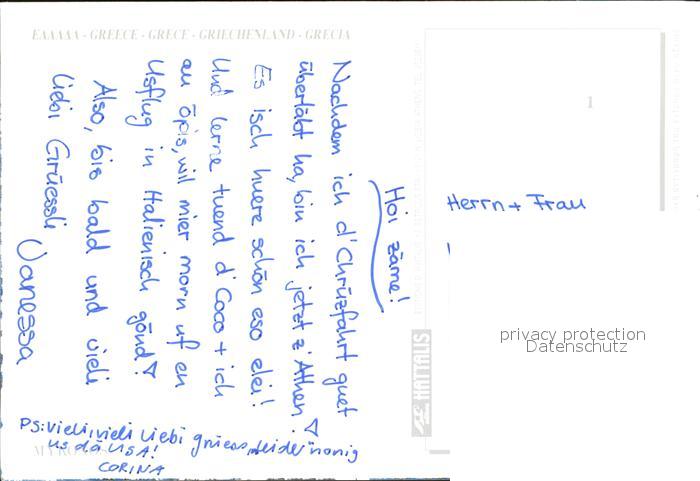 ΕΛΛΑΔΑ - GREECE - GRECE - GRIECHENLAND - GRECIA
Hoi zäme!
Nachdem ich d'Chrüzfahrt guet
überläbt ha, bin ich jetzt z'Athen!
Es isch huere schön eso elei!
Und lerne tuend d'Coco + ich
au öpis, will mier morn uf en
Usflug in Italienisch gönd!
Also, bis bald und vieli
liebi Grüessli
Vanessa
PS: vieli, vieli liebi grüess, leider nonig
us dä USA!
CORINA
Herrn + Frau
1
HAITALIS
privacy protection
Datenschutz